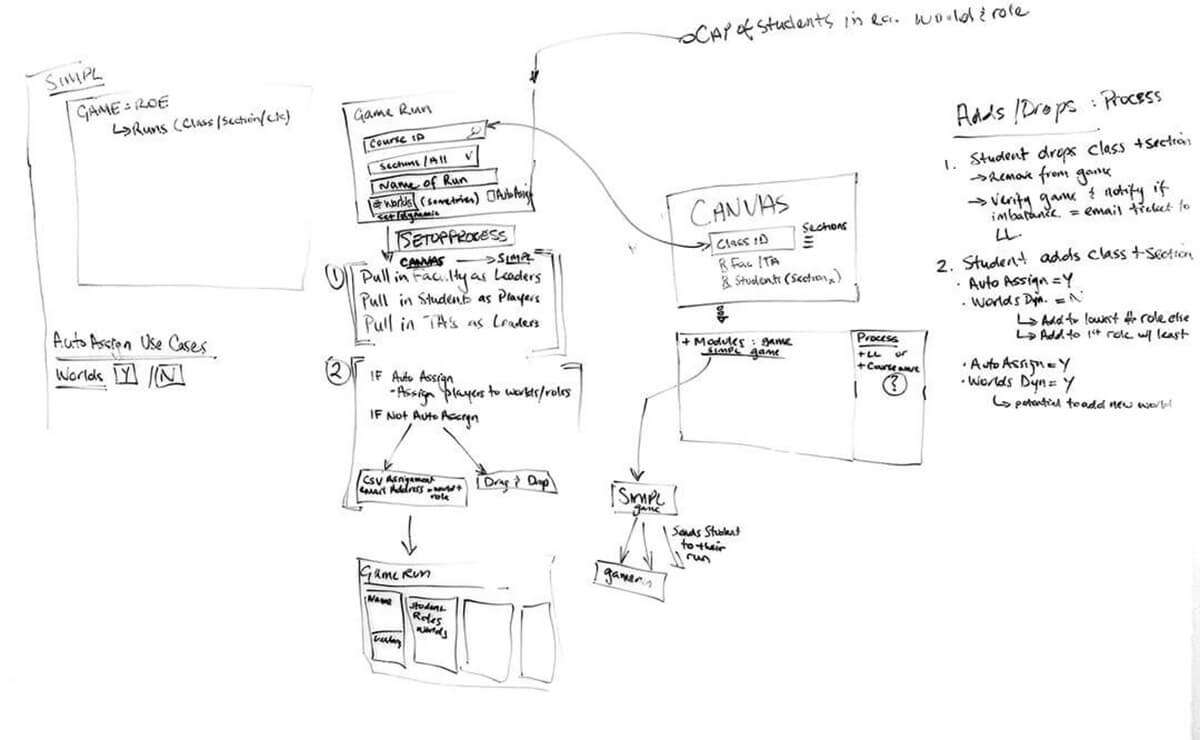 CAP of Students in ea. World & role
SIMPL
GAME = ROE
↳ Runs (Class/Section/etc)
Auto Assign Use Cases
Worlds Y / N
Game Run
Course ID
Sections/All V
Name of Run
# Worlds (sometimes) □ Auto Assign
set/dynamic
SETUP PROCESS
CANVAS → SIMPL
1 Pull in Faculty as Leaders
Pull in Students as Players
Pull in TA's as Leaders
2 IF Auto Assign
- Assign players to worlds/roles
IF Not Auto Assign
CSV Assignment
email Address = world +
role
Drag & Drop
Game Run
Name
Student
Roles
Worlds
CANVAS
Class ID
Sections
Fac/TA
Students (Section x)
+ Modules : game
SIMPL game
Process
+ LL or
+ Courseware
?
SIMPL
game
Sends Student
to their
run
game run
Adds/Drops : Process
1. Student drops class + section
→ Remove from game
→ Verify game & notify if
imbalance = email ticket to
LL.
2. Student adds class + section
· Auto Assign = Y
· Worlds Dyn. = N
↳ Add to lowest # role else
↳ Add to 1st role w/ least
· Auto Assign = Y
· Worlds Dyn = Y
↳ potential to add new world